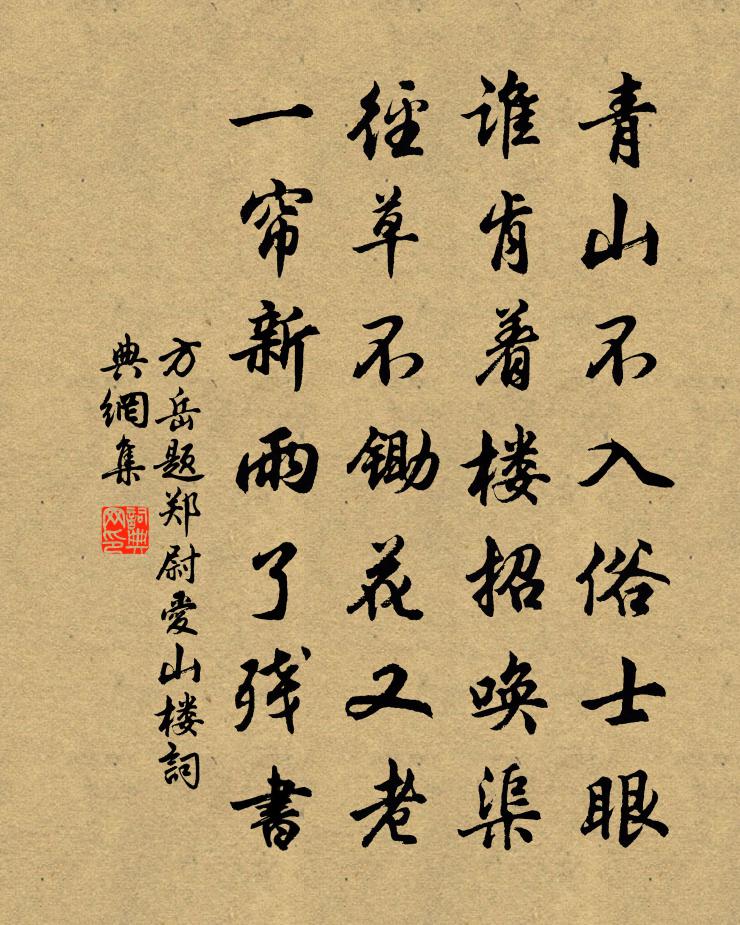 青山不入俗士眼
谁肯着楼招唤渠
径草不锄花又老
一帘新雨了残书
方岳题郑尉爱山楼词
典网集
词典网印